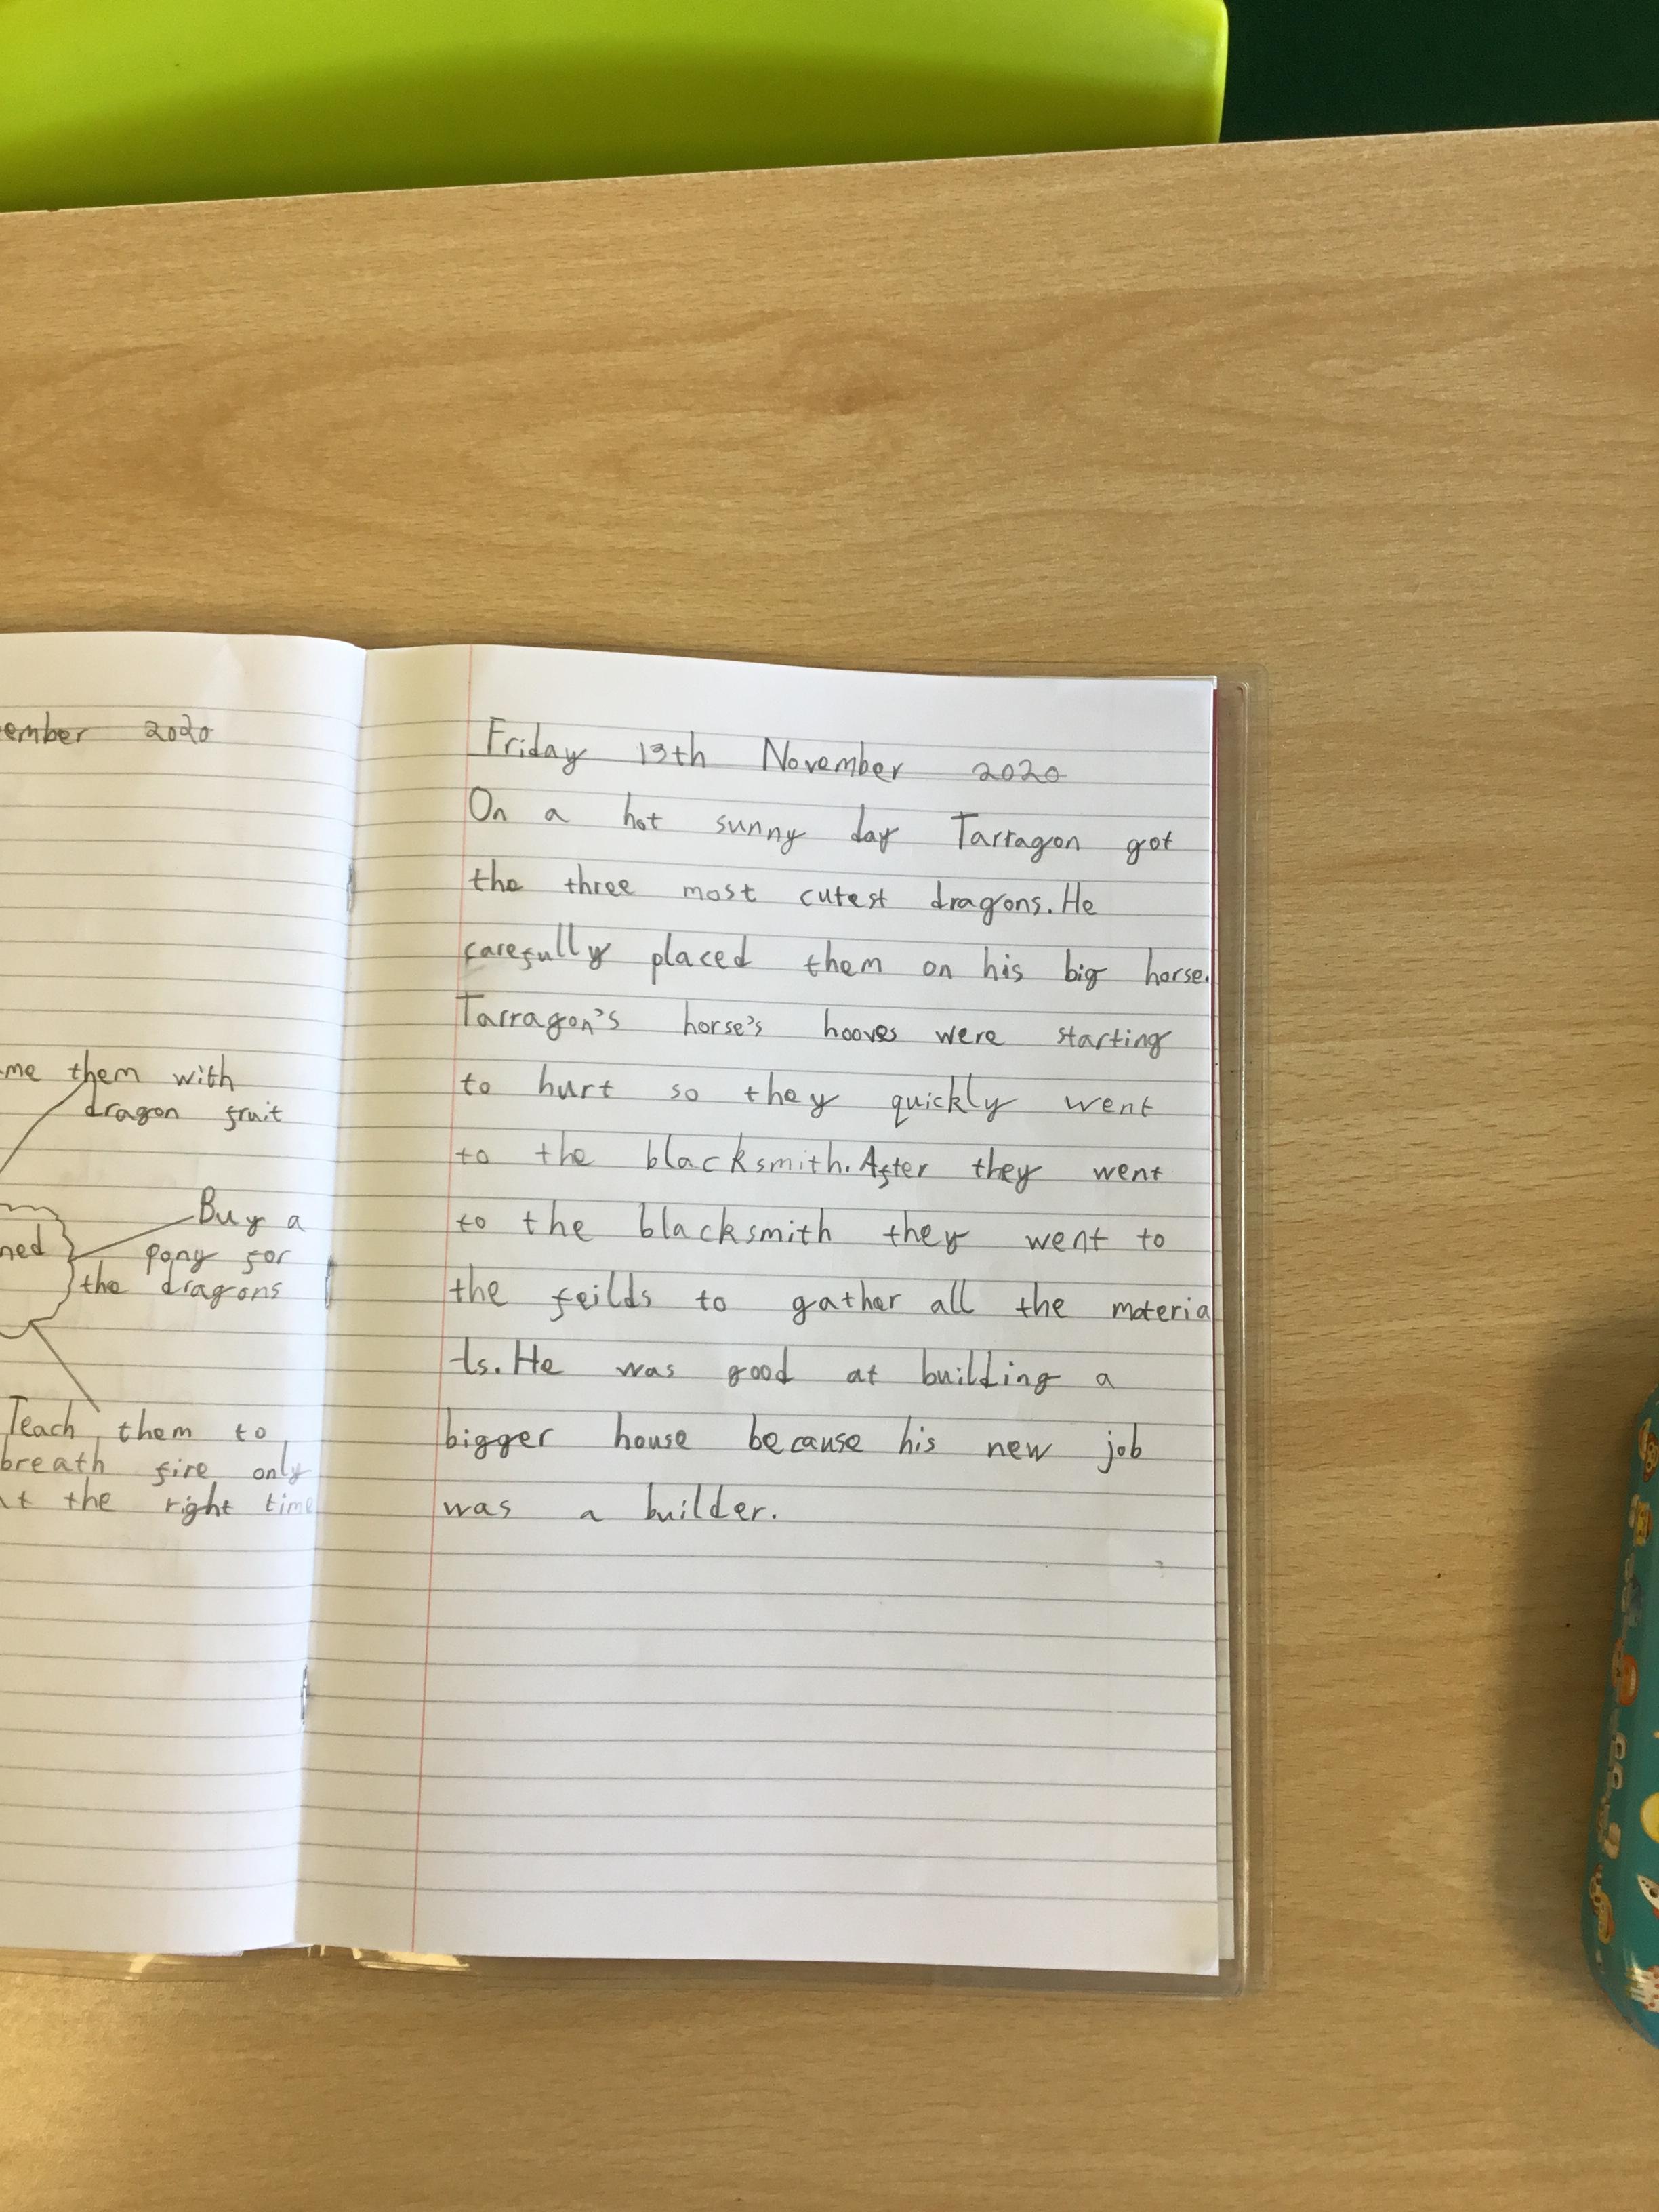 ember 2020
me them with
dragon fruit
Buy a
ned
pony for
the dragons
Teach them to
breath fire only
at the right time
Friday 13th November 2020
On a hot sunny day Tarragon got
the three most cutest dragons. He
carefully placed them on his big horse.
Tarragon's horse's hooves were starting
to hurt so they quickly went
to the blacksmith. After they went
to the blacksmith they went to
the feilds to gather all the materia
ls. He was good at building a
bigger house because his new job
was a builder.